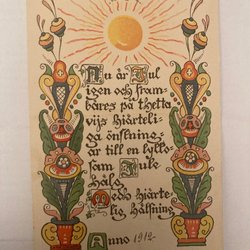 Nu är Jul
igen och fram-
bäres på thetta
vijs hiärteli-
ga önskning-
ar till en lyklo-
sam Jule
Hälg
Medh hiärte-
lig hälsning
Anno 1912